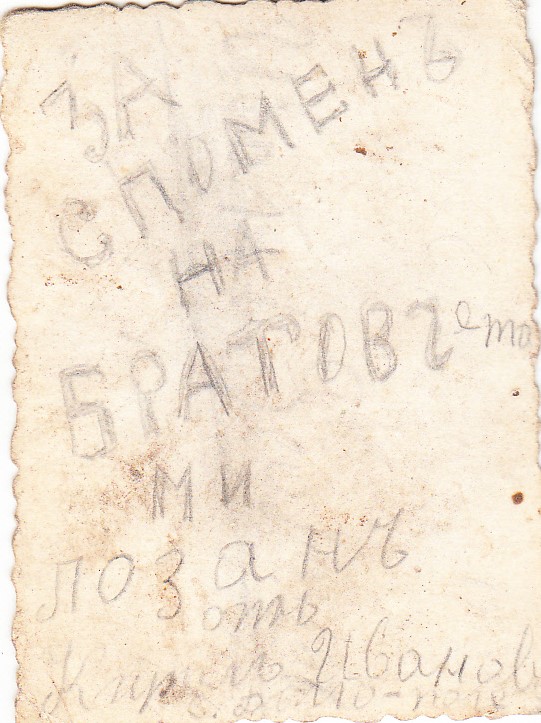 ЗА
СПОМЕНЪ
НА
БРАТОВЧето
МИ
ЛОЗАНЪ
отъ
Кирилъ Иванов